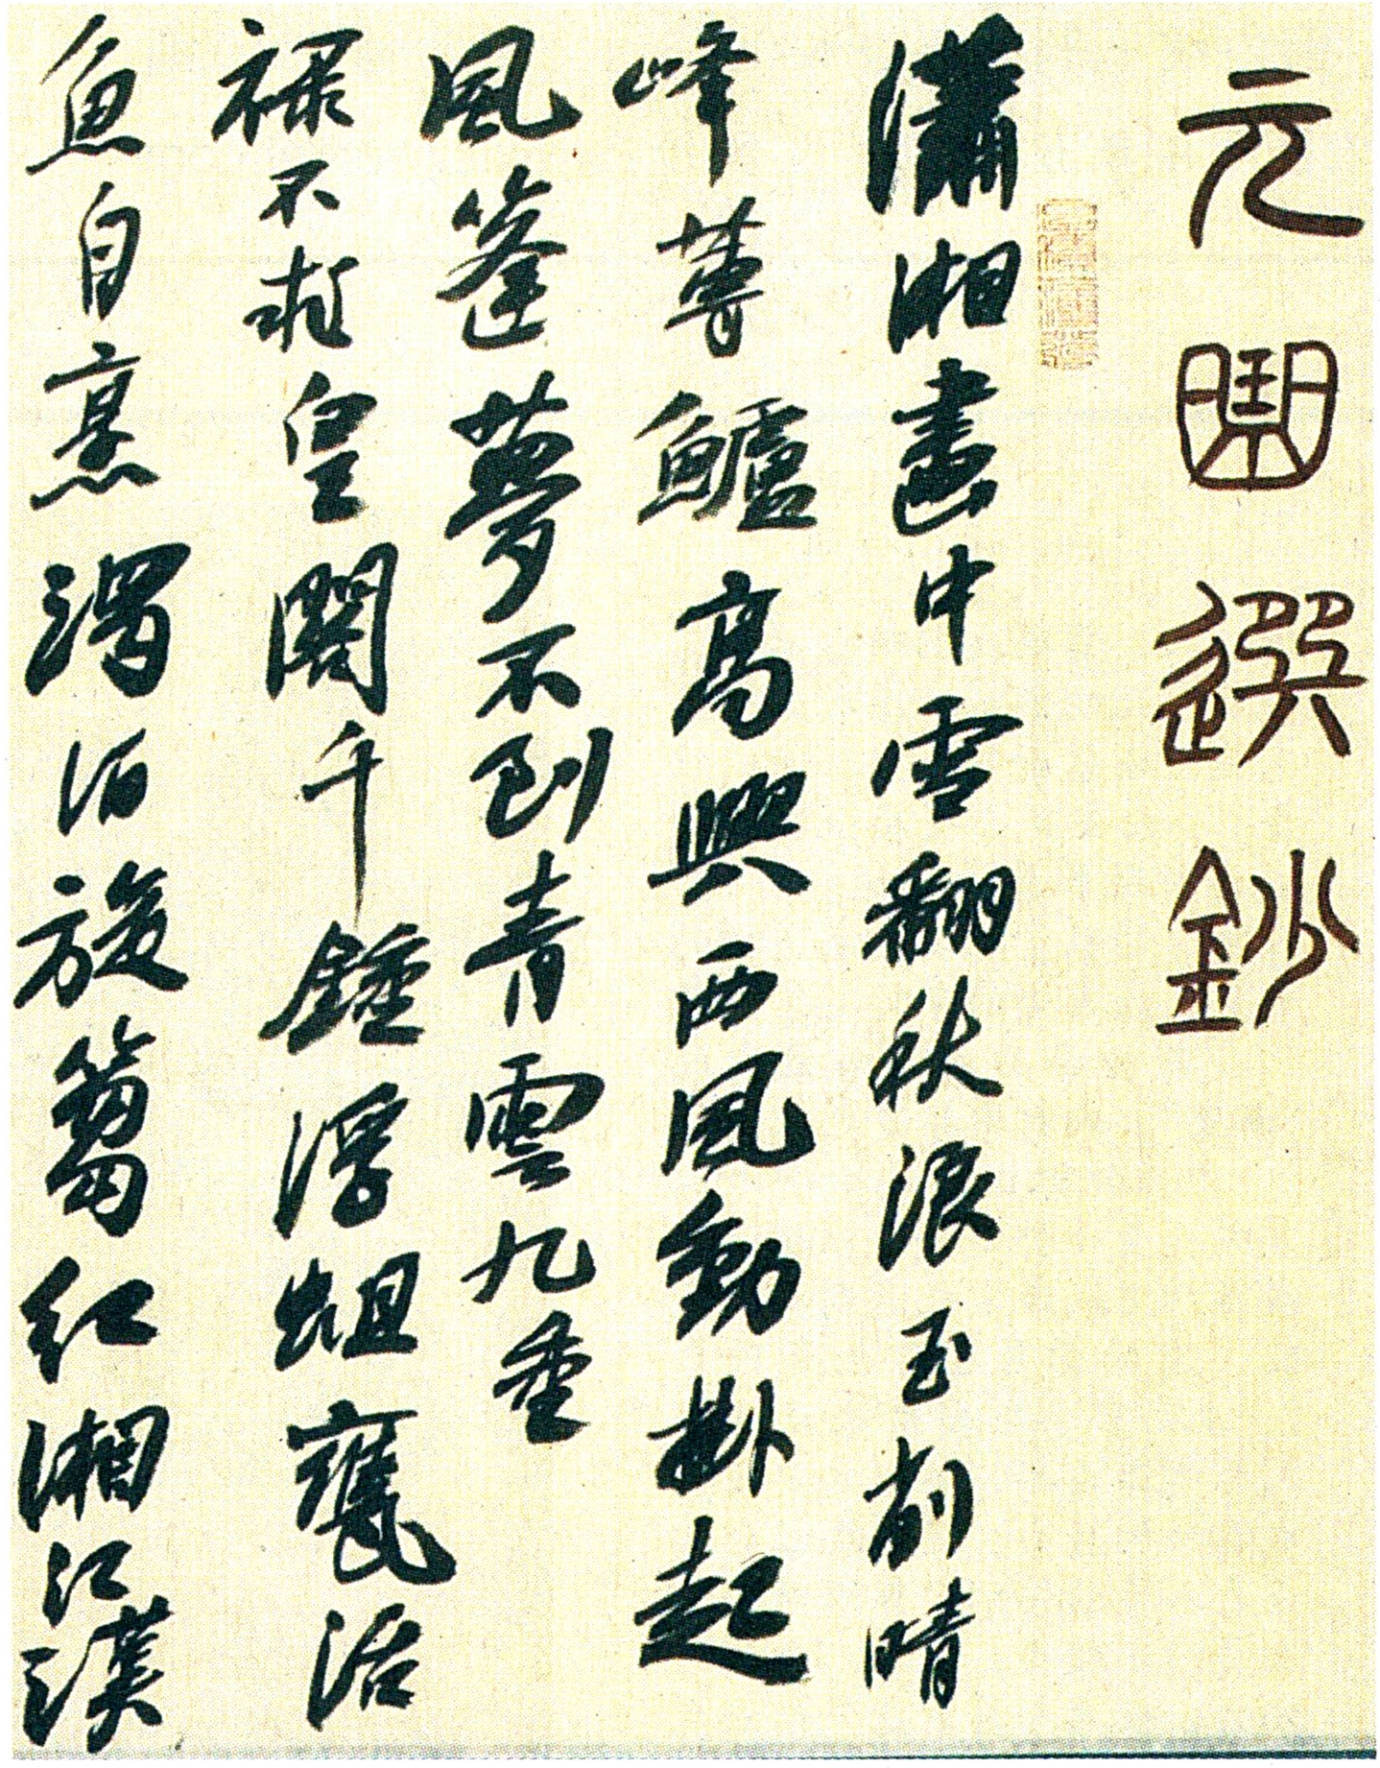 元曲選鈔
瀟湘畫中雪翻秋浪玉削晴
峰蓴鱸高興西風動掛起
風篷夢不到青雲九重
祿不求皇闕千鍾浮蛆甕活
魚自烹濁酒旋篘紅湘江漢